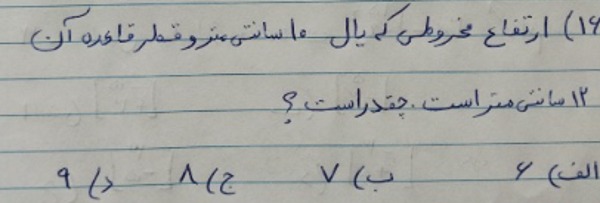 ۱۶) ارتفاع مخروطی که یال ۱۰ سانتی متر و قطر قاعده آن
۱۲ سانتی متر است. چقدر است ؟
الف) ۶ ب) ۷ ج) ۸ د) ۹